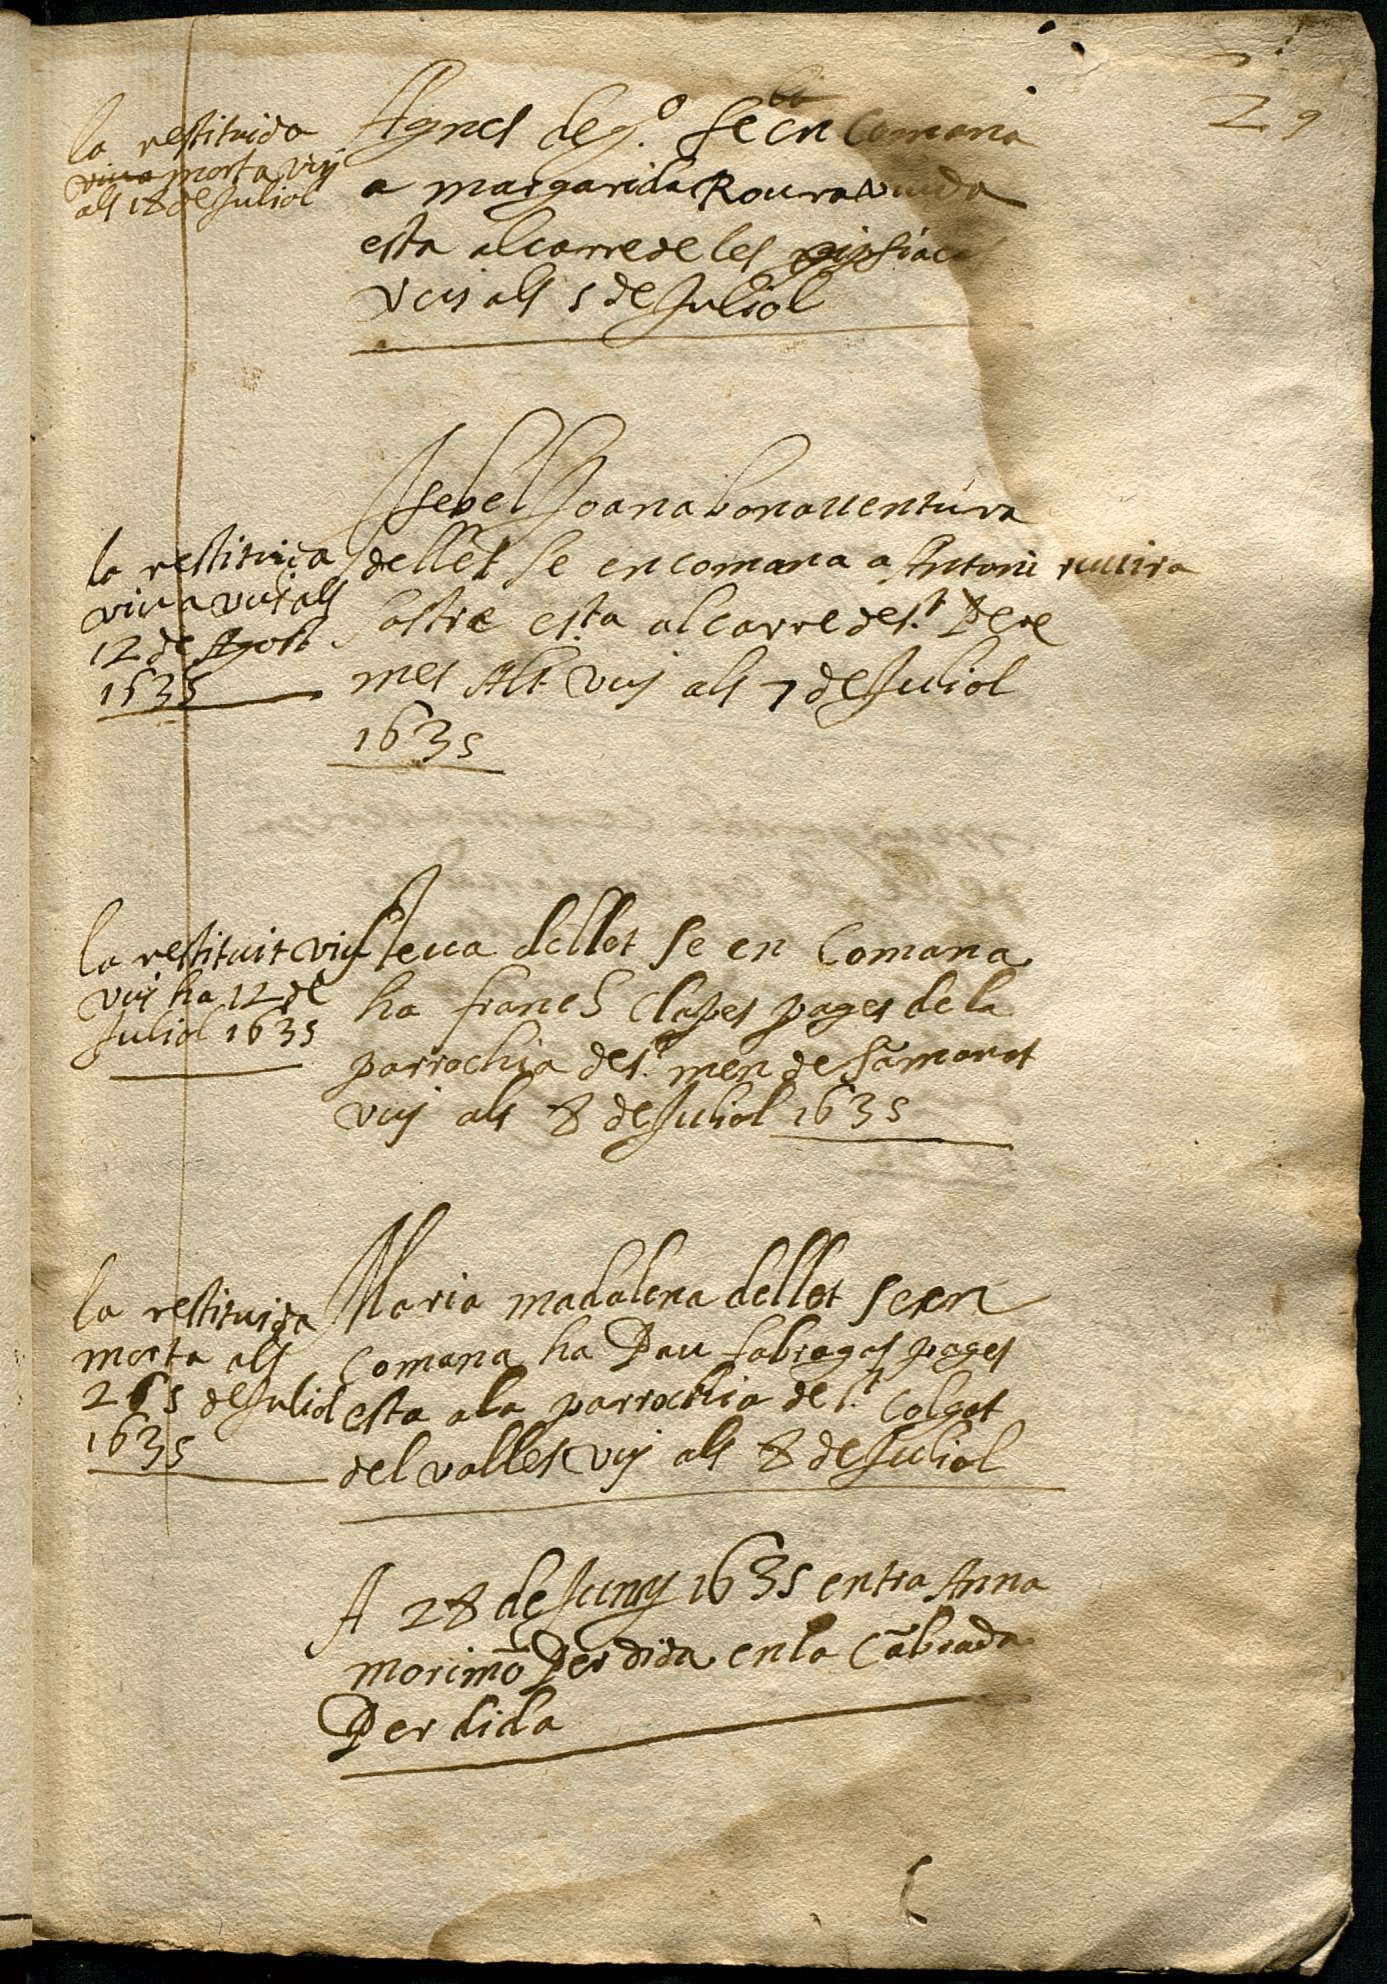 29
la restituida
viua morta vuy
als 18 de Juliol
Agnes de g.º se en Comana
a margarida Roura viuda
esta al carre de les
vuy als 5 de Juliol
la restituida
viua vuy als
12 de Agost
1535
Isebel Joana bonauentura
dellet se encomana a Antoni
sastre esta al carre de s.t Pere
mes Alt vuy als 7 de Juliol
1635
la restituit viu
vuy ha 12 de
Juliol 1635
teua dellet se en Comana
ha franc.s Clapes pages de la
parrochia de s.t men de samanat
vuy als 8 de Juliol 1635
la restituida
morta als
265 de Juliol
1635
Maria madalena dellet se en
comana ha Pau fabragas pages
esta a la parrochia de s.t Colgat
del valles vuy als 8 de Juliol
A 28 de Juny 1635 entra Anna
morimō Perdida en la Cābrada
Perdida